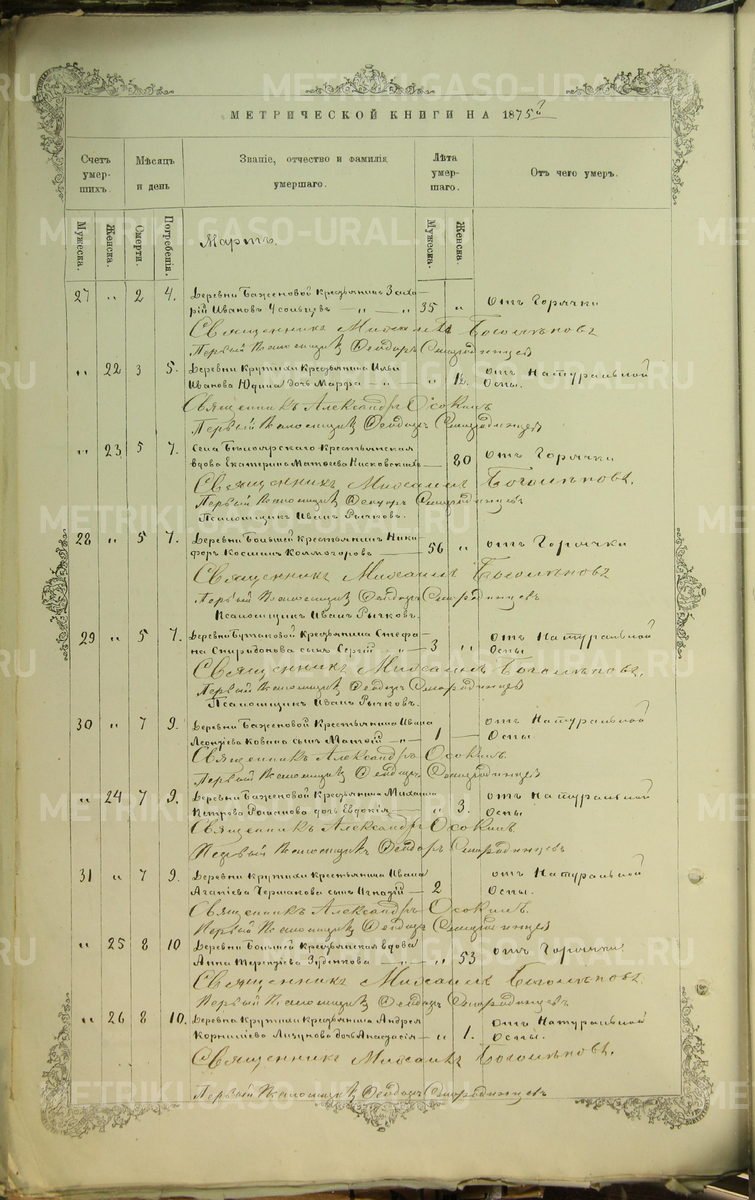 METRIKI.GASO-URAL.RU
МЕТРИЧЕСКОЙ КНИГИ НА 1875
Счетъ умерших. Мѣсяцъ и день Званіе, отчество и фамилія умершаго. Лѣта умершаго. Отъ чего умеръ.
Мужеска. Женска. Смерти. Погребенія. Мужеска. Женска.
Мартъ.
27 " 2 4. Деревни Баженовой Крестьянинъ Заха-
рій Ивановъ 35 " отъ Горячки
Священникъ Михаилъ Боголѣповъ
Первый Псаломщикъ Ѳеодоръ Смородинцевъ
" 22 3 5. Деревни Крутихи Крестьянина Ильи отъ Натуральной
Иванова Юдина дочь Марфа " Оспы.
Священникъ Александръ Осокинъ
Первый Псаломщикъ Ѳеодоръ Смородинцевъ
" 23 5 7. Села Бѣлоярскаго Крестьянская
вдова Екатерина Матѳеева 80 отъ Горячки
Священникъ Михаилъ Боголѣповъ.
Первый Псаломщикъ Ѳеодоръ Смородинцевъ
Псаломщикъ Иванъ Рычковъ.
28 " 5 7. Деревни Большей Крестьянинъ Ники-
форъ Косминъ Колмогоровъ 56 " отъ Горячки
Священникъ Михаилъ Боголѣповъ
Первый Псаломщикъ Ѳеодоръ Смородинцевъ
Псаломщикъ Иванъ Рычковъ.
29 " 5 7. Деревни Бутаковой Крестьянина Стефа- отъ Натуральной
на Спиридонова сынъ Сергій 3 " Оспы.
Священникъ Михаилъ Боголѣповъ.
Первый Псаломщикъ Ѳеодоръ Смородинцевъ
Псаломщикъ Иванъ Рычковъ.
30 " 7 9. Деревни Баженовой Крестьянина Ивана отъ Натуральной
сынъ 1 Оспы
Священникъ Александръ Осокинъ.
Первый Псаломщикъ Ѳеодоръ Смородинцевъ
" 24 7 9. Деревни Баженовой Крестьянина Михаила отъ Натуральной
Петрова дочь Евдокія " 3. Оспы
Священникъ Александръ Осокинъ
Первый Псаломщикъ Ѳеодоръ Смородинцевъ
31 " 7 9. Деревни Крутихи Крестьянина Ивана отъ Натуральной
Агапіева Чермакова сынъ 2 Оспы.
Священникъ Александръ Осокинъ.
Первый Псаломщикъ Ѳеодоръ Смородинцевъ
" 25 8 10 Деревни Большей Крестьянская вдова
Анна Терентіева Зубенкова " 53 отъ Горячки
Священникъ Михаилъ Боголѣповъ.
Первый Псаломщикъ Ѳеодоръ Смородинцевъ
" 26 8 10. Деревни Крутихи Крестьянина Андрея отъ Натуральной
Корниліева дочь Анастасія " 1. Оспы.
Священникъ Михаилъ Боголѣповъ.
Первый Псаломщикъ Ѳеодоръ Смородинцевъ